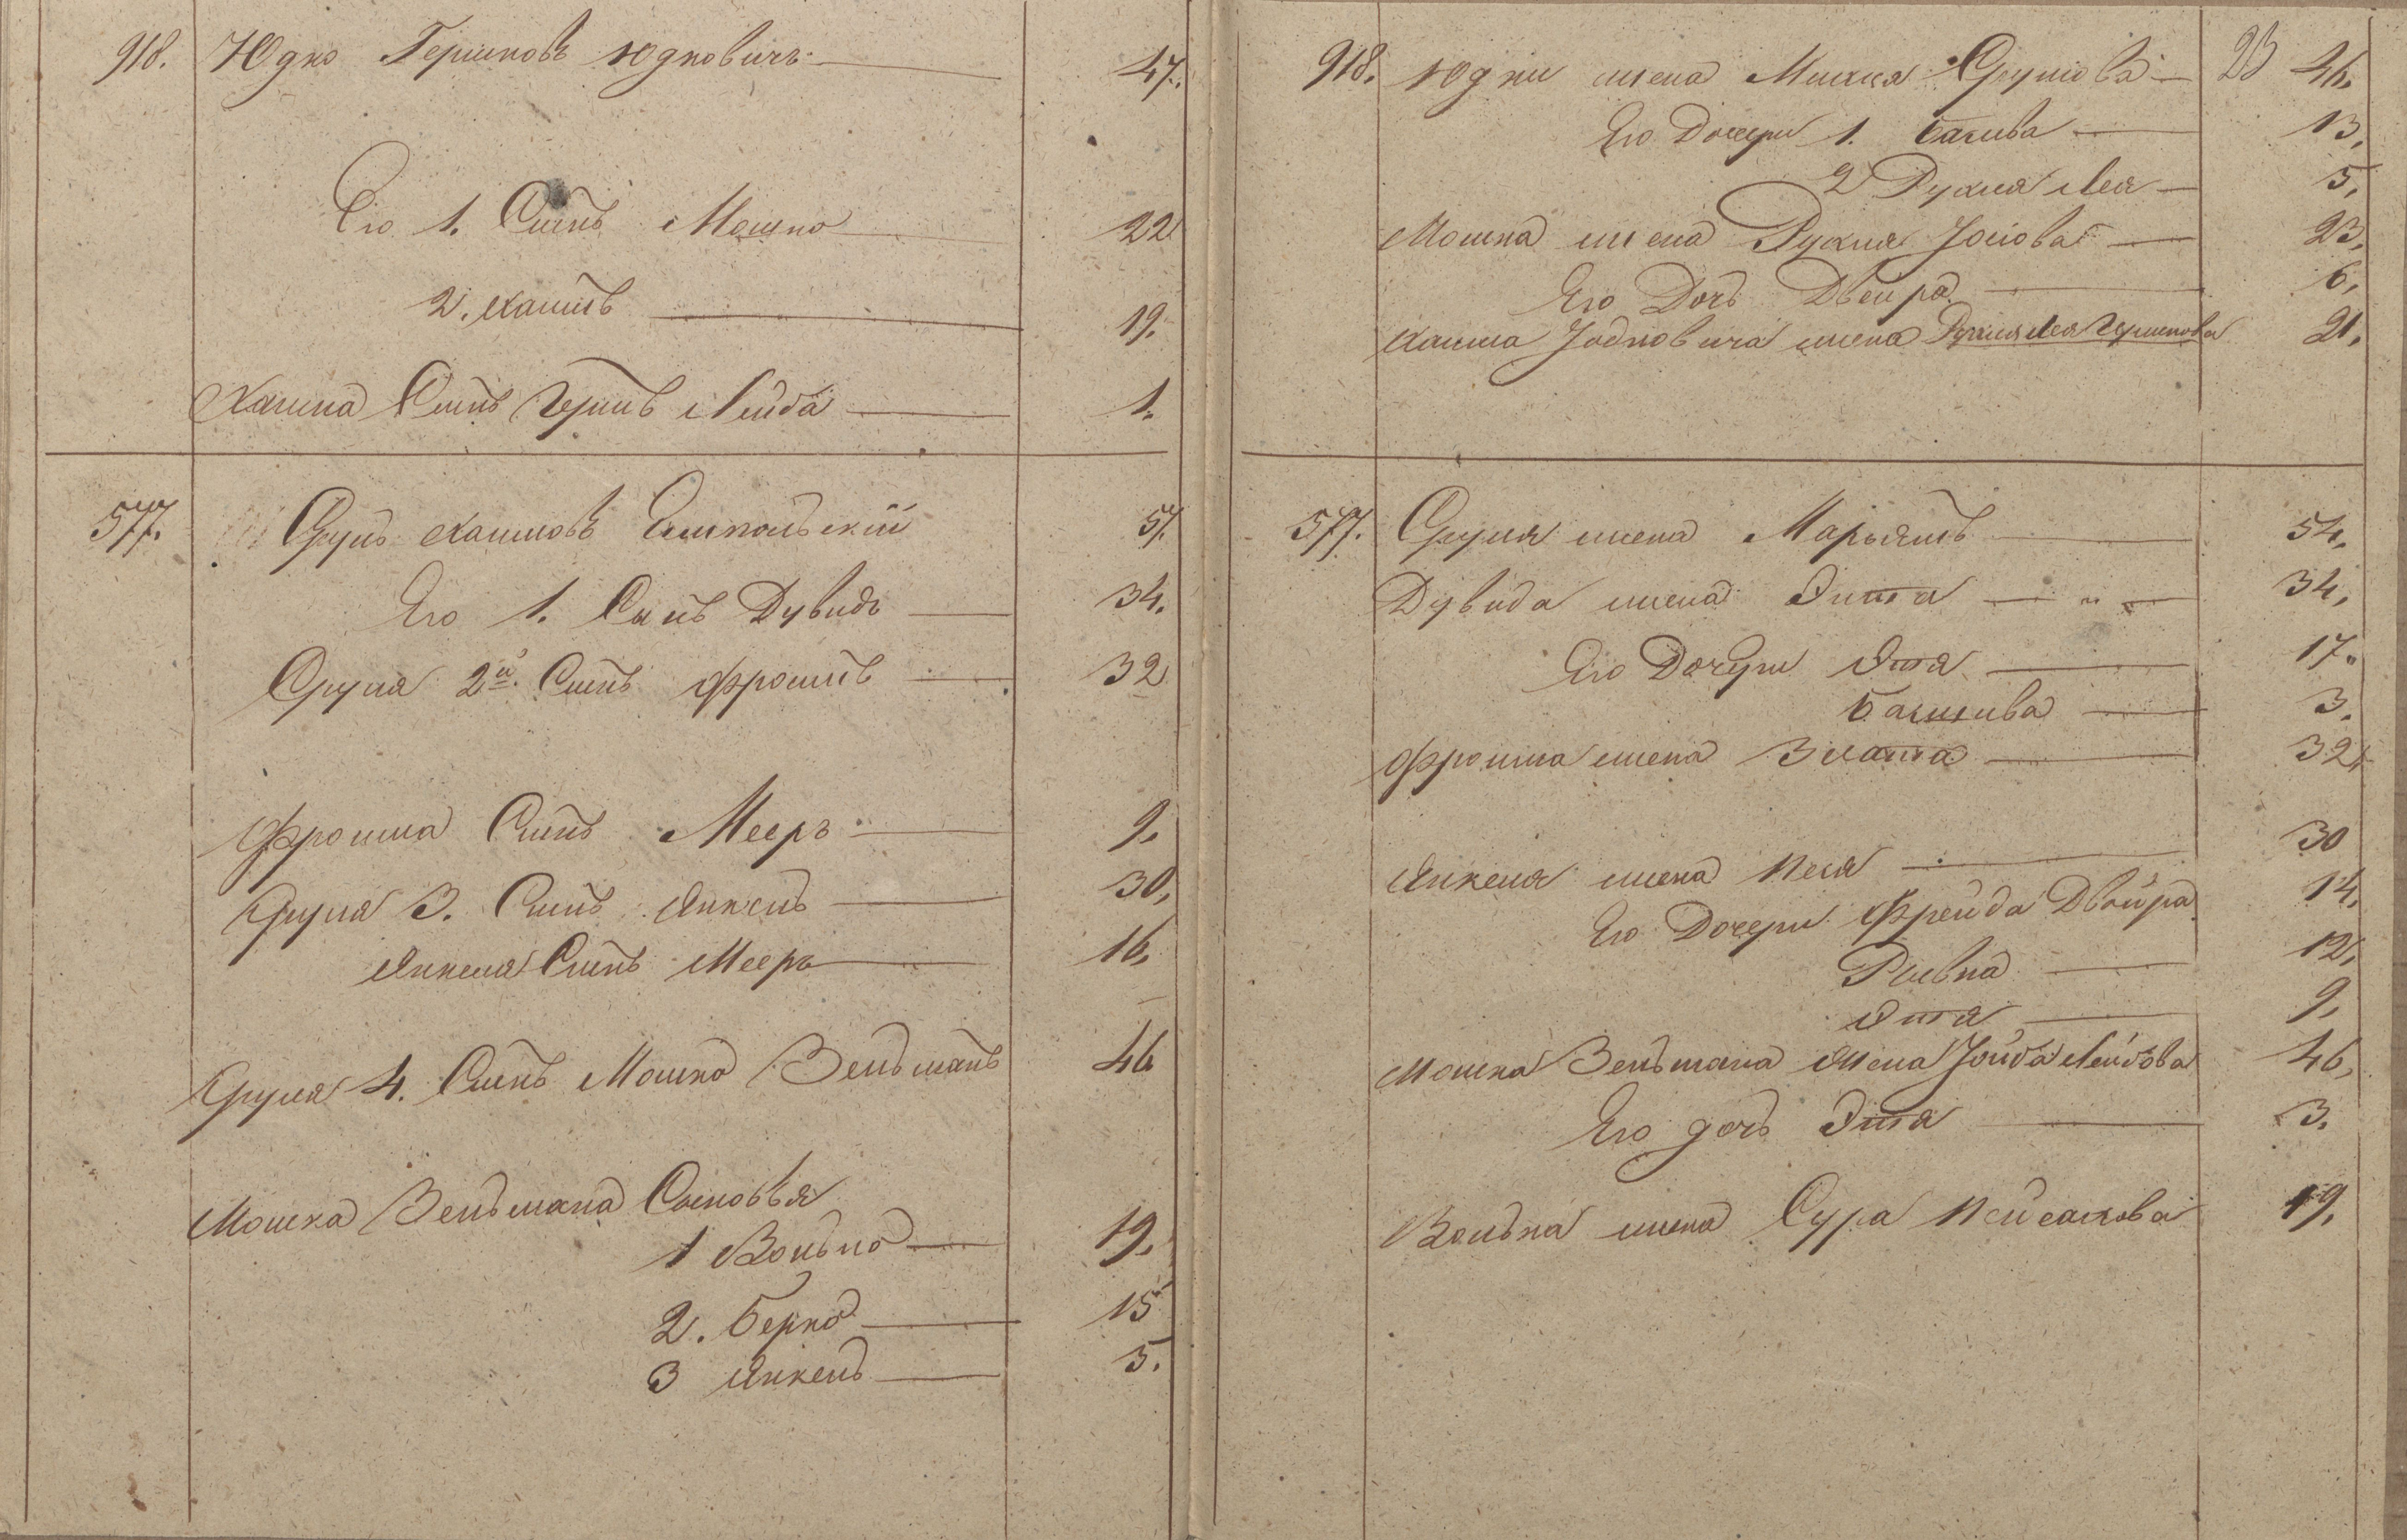 918. Юдко Гершковъ Юдковичъ 47.
Его 1. Сынъ Мошко 22
2. Хаимъ 19.
Хаима Сынъ Гершъ Лейба 1.
577. Сруль Хаимовъ Ямпольскій 57.
Его 1. Сынъ Дувидъ 34.
Сруля 2й. Сынъ Фроимъ 32
Фроима Сынъ Мееръ 9.
Сруля 3. Сынъ Янкель 30,
Янкеля Сынъ Мееръ 16,
Сруля 4. Сынъ Мошко Зельманъ 46
Мошка Зельмана Сыновья
1 Волько 19.
2. Берко 15
3 Янкель 5.
23
918. Юдки жена Малка Срулева 46.
Его Дочери 1. Башива 13,
2 Рухля Лея 5,
Мошка жена Рухля Іосіова 23,
Его Дочь Двейра 6,
Хаима Іодковича жена Рухля Лея Гершкова 21,
577. Сруля жена Марьямъ 54,
Дувида жена Энта 34,
Его Дочери Этя 17.
Башшва 3.
Фроима жена Злата 32,
Янкеля жена Песя 30
Его Дочери Фрейда Двойра 14,
Ривка 12,
Этя 9,
Мошка Зельмана жена Іойба Лейбова 46,
Его дочь Этя 3.
Волька жена Сура Пейсахова 19,